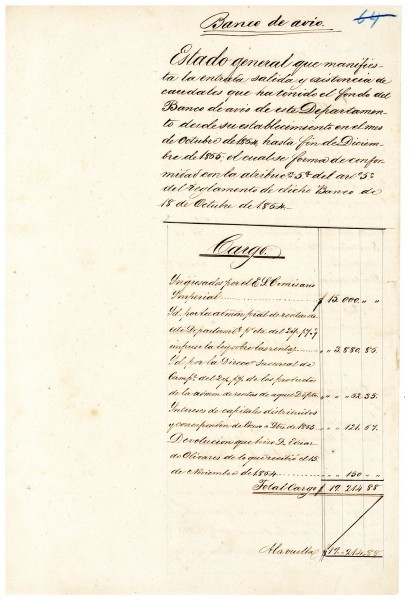 64
Banco de avio.
Estado general que manifies-
ta la entrada salida y existencia de
caudales que ha tenido el fondo del
Banco de avio de este Departamen-
to desde su establecimiento en el mes
de Octubre de 1864 hasta fin de Diciem-
bre de 1865, el cual se forma de confor-
midad con la atribun 5ª del artº 5º
del Reglamento de dicho Banco de
18 de Octubre de 1864.
Cargo.
Ingresados por el E. S. Comisario
Imperial $ 15.000 " "
Id. por la admon pral de rentas de
este Departamto
impuso la ley sobre las rentas " 3.880. 85.
Id. por la Direcon Sucursal de
Campe del 2 de los productos
de la admon de rentas de aquel Dist " " 52. 35.
Intereses de capitales distribuidos
y correspondten de Enero a Dbre de 1865 " " 131. 57.
Devolucion que hizo D.
de Olivares de lo que recibió el 15
de Noviembre de 1864 " " 150 " "
Total Cargo $ 19. 214 88
A la vuelta $ 19. 214. 88